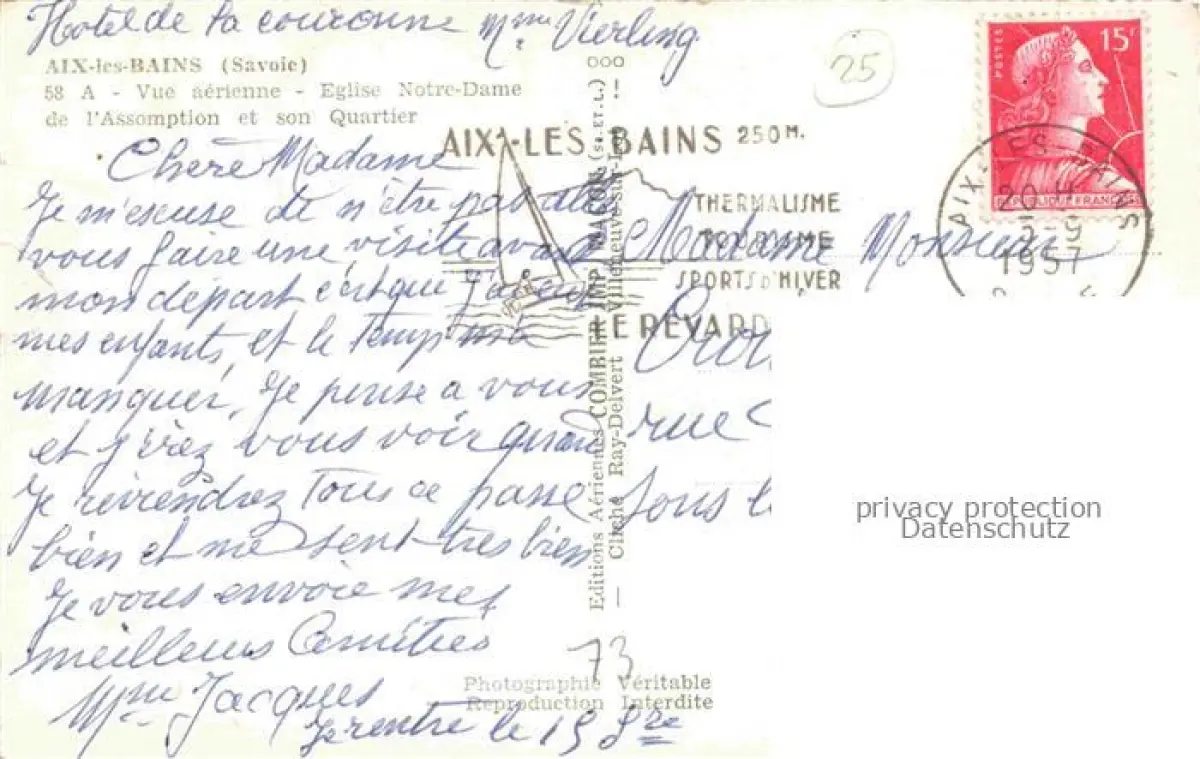 Hotel de la couronne Mme Vierling
AIX-les-BAINS (Savoie)
58 A - Vue aérienne - Eglise Notre-Dame
de l'Assomption et son Quartier
Chere Madame
Je m'escuse de n'être pas allé
vous faire une visite avant
mon depart c'est que
mes enfants, et le temp m'a
manquer, Je pense a vous
et j'irez vous voir quand
Je reviendrez Tous ce passe
bien et me sent tres bien
Je vous envoie mes
meilleurs Amitiés
Mme Jacques
Je rentre le 15
Editions Aériennes COMBIER IMP. MACON (S.-ET-L.)
— Cliché Ray-Delvert Villeneuve-sur-L. —
73
Photographie Véritable
Reproduction Interdite
25
AIX-LES BAINS 250 M.
THERMALISME
TOURISME
SPORTS D'HIVER
LE REVARD
POSTES
15F
REPUBLIQUE FRANÇAISE
AIX-LES-BAINS
20 H
5-9
1957
Madame Monsieur
rue
sous l
privacy protection
Datenschutz